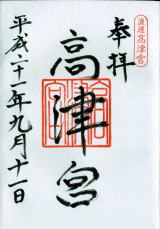 奉拝
浪速高津宮
高津宮
平成二十一年九月十一日